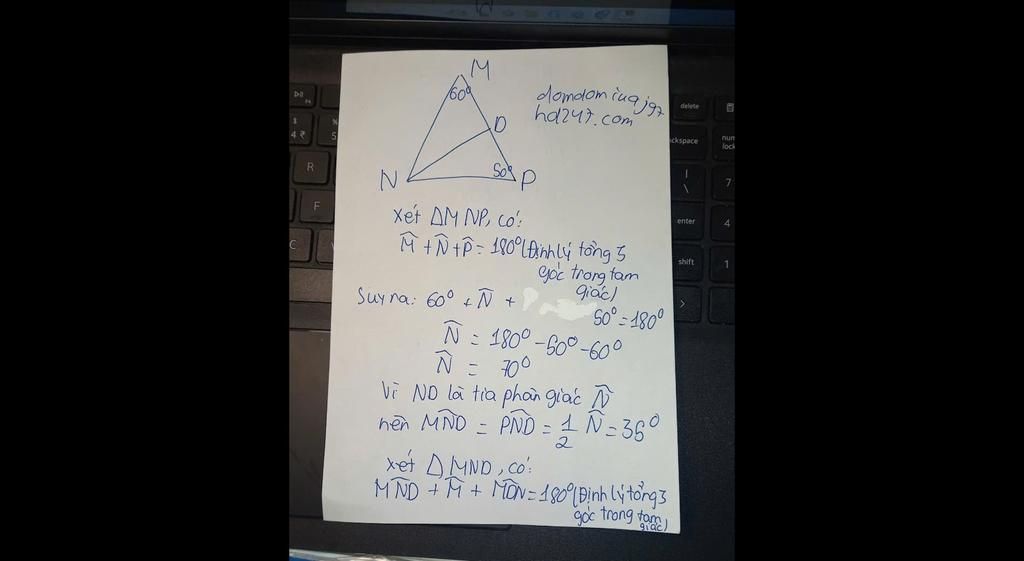 M
60⁰
domdomiuqjg7
hd247.com
D
N
50⁰
P
xét ΔMNP, có:
M̂ + N̂ + P̂ = 180⁰ (Định lý tổng 3
góc trong tam
giác)
Suy ra: 60⁰ + N̂ +
50⁰ = 180⁰
N̂ = 180⁰ - 50⁰ - 60⁰
N̂ = 70⁰
Vì ND là tia phân giác N̂
nên MN̂D = PN̂D = 1/2 N̂ = 35⁰
xét Δ MND, có:
MN̂D + M̂ + MD̂N = 180⁰ (Định lý tổng 3
góc trong tam
giác)
delete
ckspace
num
lock
enter
shift
7
4
1
$
4 ₹
%
5
R
F
C
V
|
\
>